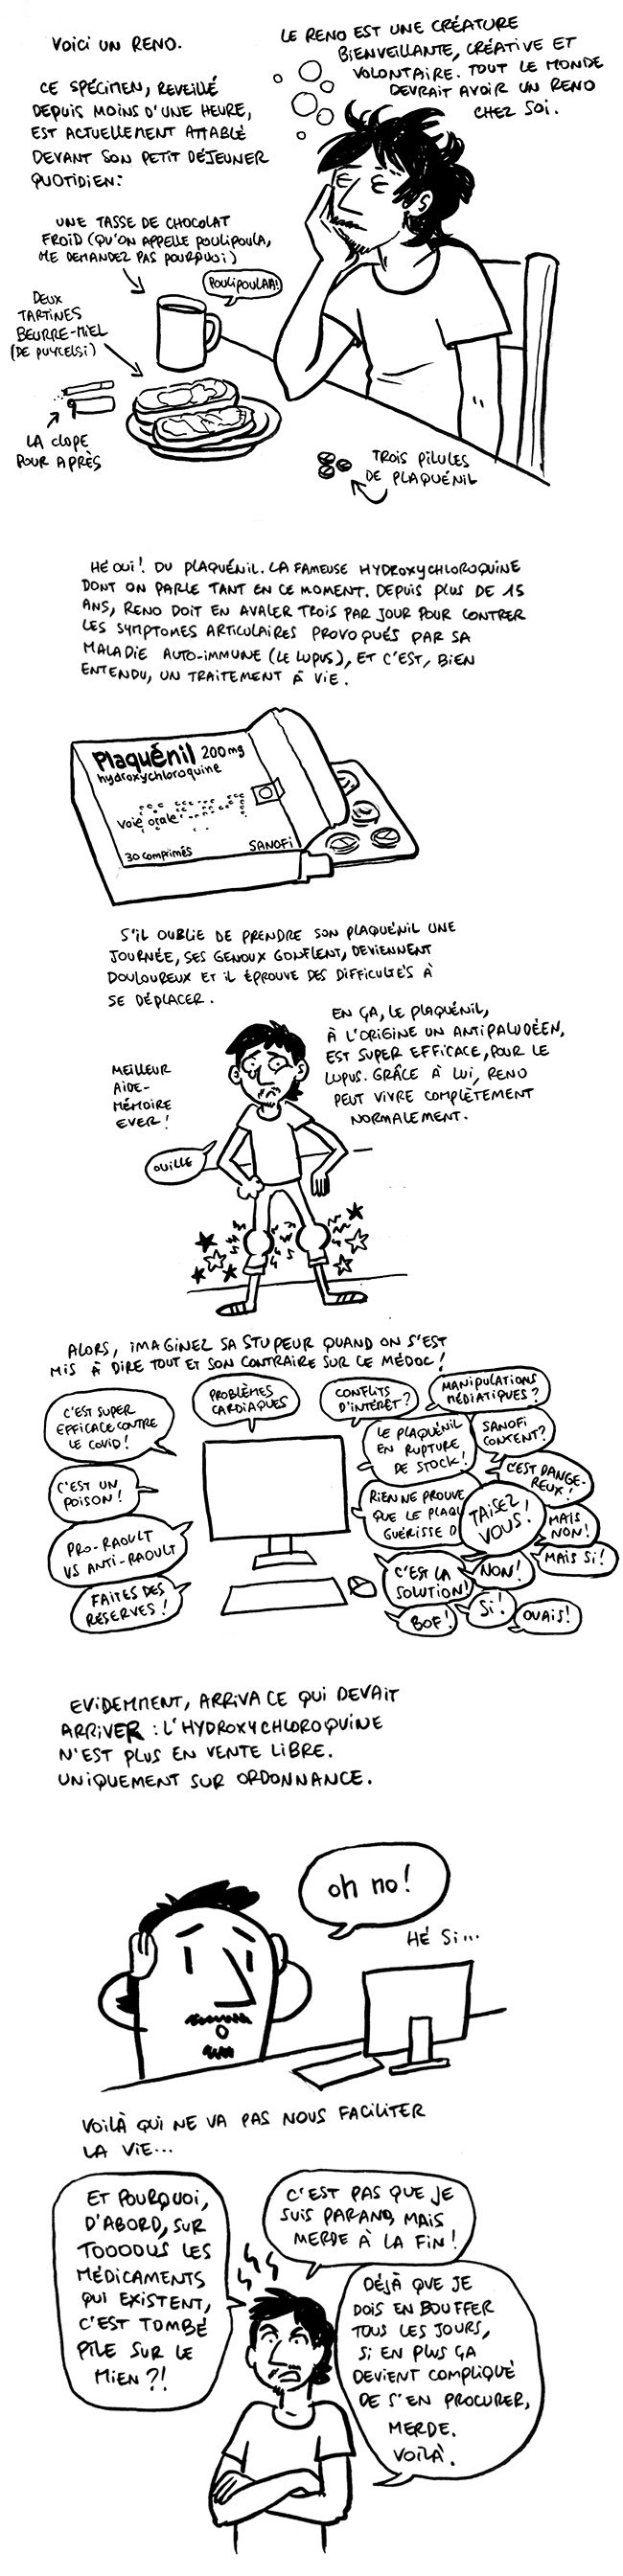 VOICI UN RENO.
CE SPÉCIMEN, REVEILLÉ
DEPUIS MOINS D'UNE HEURE,
EST ACTUELLEMENT ATTABLÉ
DEVANT SON PETIT DÉJEUNER
QUOTIDIEN:
LE RENO EST UNE CRÉATURE
BIENVEILLANTE, CRÉATIVE ET
VOLONTAIRE. TOUT LE MONDE
DEVRAIT AVOIR UN RENO
CHEZ SOI.
UNE TASSE DE CHOCOLAT
FROID (QU'ON APPELLE POULIPOULA,
ME DEMANDEZ PAS POURQUOI)
POULIPOULAA!
DEUX
TARTINES
BEURRE-MIEL
(DE PUYCELSI)
LA CLOPE
POUR APRÈS
TROIS PILULES
DE PLAQUÉNIL
HÉ OUI! DU PLAQUÉNIL. LA FAMEUSE HYDROXYCHLOROQUINE
DONT ON PARLE TANT EN CE MOMENT. DEPUIS PLUS DE 15
ANS, RENO DOIT EN AVALER TROIS PAR JOUR POUR CONTRER
LES SYMPTOMES ARTICULAIRES PROVOQUÉS PAR SA
MALADIE AUTO-IMMUNE (LE LUPUS), ET C'EST, BIEN
ENTENDU, UN TRAITEMENT À VIE.
Plaquénil 200mg
hydroxychloroquine
voie orale
30 comprimés
SANOFI
S'IL OUBLIE DE PRENDRE SON PLAQUÉNIL UNE
JOURNÉE, SES GENOUX GONFLENT, DEVIENNENT
DOULOUREUX ET IL ÉPROUVE DES DIFFICULTÉS À
SE DÉPLACER.
EN ÇA, LE PLAQUÉNIL,
À L'ORIGINE UN ANTIPALUDÉEN,
EST SUPER EFFICACE, POUR LE
LUPUS. GRÂCE À LUI, RENO
PEUT VIVRE COMPLÈTEMENT
NORMALEMENT.
MEILLEUR
AIDE-
MÉMOIRE
EVER!
OUILLE
ALORS, IMAGINEZ SA STUPEUR QUAND ON S'EST
MIS À DIRE TOUT ET SON CONTRAIRE SUR CE MÉDOC!
C'EST SUPER
EFFICACE CONTRE
LE COVID!
PROBLÈMES
CARDIAQUES
CONFLITS
D'INTÉRÊT?
MANIPULATIONS
MÉDIATIQUES?
C'EST UN
POISON!
LE PLAQUÉNIL
EN RUPTURE
DE STOCK!
SANOFI
CONTENT?
C'EST DANGE-
REUX!
PRO-RAOULT
VS ANTI-RAOULT
RIEN NE PROUVE
QUE LE PLAQU
GUÉRISSE D
TAISEZ
VOUS!
MAIS
NON!
MAIS SI!
FAITES DES
RÉSERVES!
C'EST LA
SOLUTION!
NON!
BOF!
SI!
OUAIS!
EVIDEMMENT, ARRIVA CE QUI DEVAIT
ARRIVER : L'HYDROXYCHLOROQUINE
N'EST PLUS EN VENTE LIBRE.
UNIQUEMENT SUR ORDONNANCE.
oh no!
HÉ SI...
VOILÀ QUI NE VA PAS NOUS FACILITER
LA VIE...
ET POURQUOI,
D'ABORD, SUR
TOOODUS LES
MÉDICAMENTS
QUI EXISTENT,
C'EST TOMBÉ
PILE SUR LE
MIEN?!
C'EST PAS QUE JE
SUIS PARANO, MAIS
MERDE À LA FIN!
DÉJÀ QUE JE
DOIS EN BOUFFER
TOUS LES JOURS,
SI EN PLUS ÇA
DEVIENT COMPLIQUÉ
DE S'EN PROCURER,
MERDE.
VOILÀ.